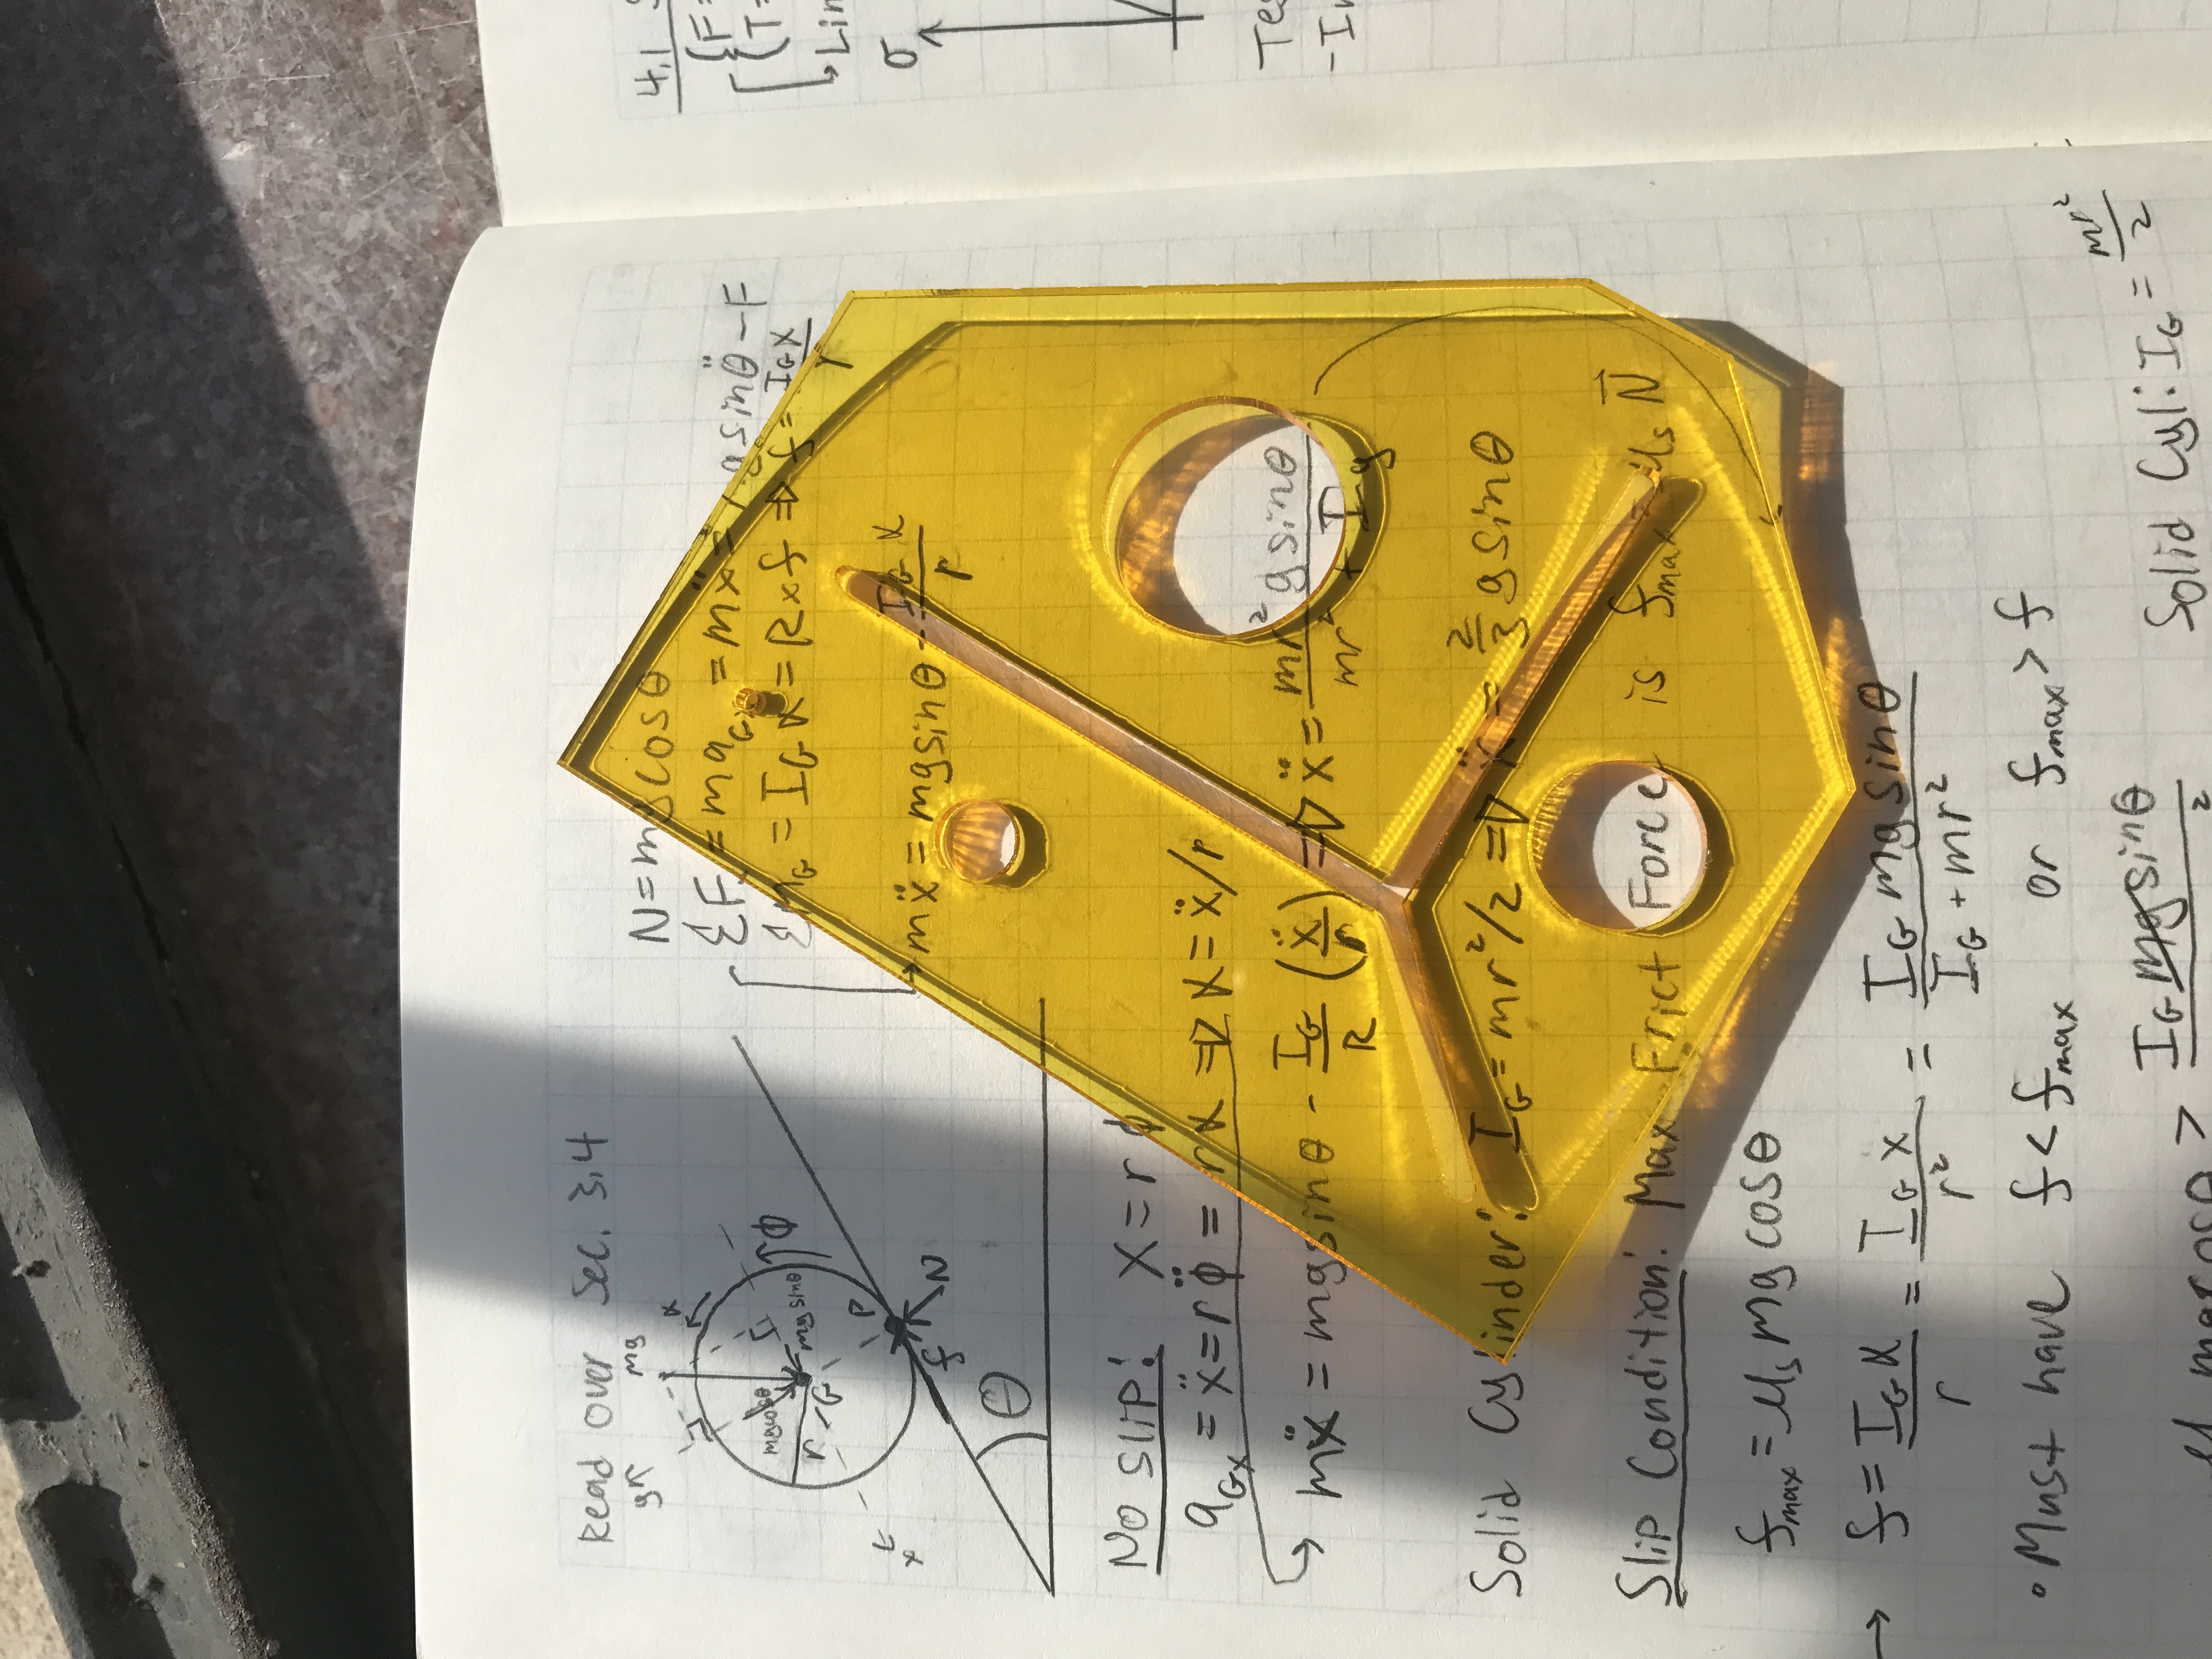 Read Over Sec. 3.4
y
mg
α
mgcosθ
mg sinθ
ϕ
r
G
P
x
f
N
θ
N=mgcosθ
ΣF = ma_Gx = mẍ = gsinθ̈ - F
ΣM_G = I_G α = R×f ⇒ f = I_G α / r
→ mẍ = mgsinθ - I_G α / r
No slip: x = rϕ
a_Gx = ẍ = rϕ̈ = rα ⇒ α = ẍ/r
↳ mẍ = mgsinθ - I_G/R (ẍ/r) ⇒ ẍ = mr² g sinθ / mr² + I_g
Solid Cylinder: I_G = mr²/2 ⇒ ẍ = 2/3 g sinθ
Slip Condition: Max Frict Force is f_max = μ_s N⃗
f_max = μ_s mg cosθ
→ f = I_G α / r = I_G x / r² = I_G mg sinθ / I_G + mr²
• Must have f < f_max or f_max > f
> I_G mg sinθ
Solid Cyl: I_G = mr²/2
4.1
{F=
(T=
↳ Lin
σ
Tes